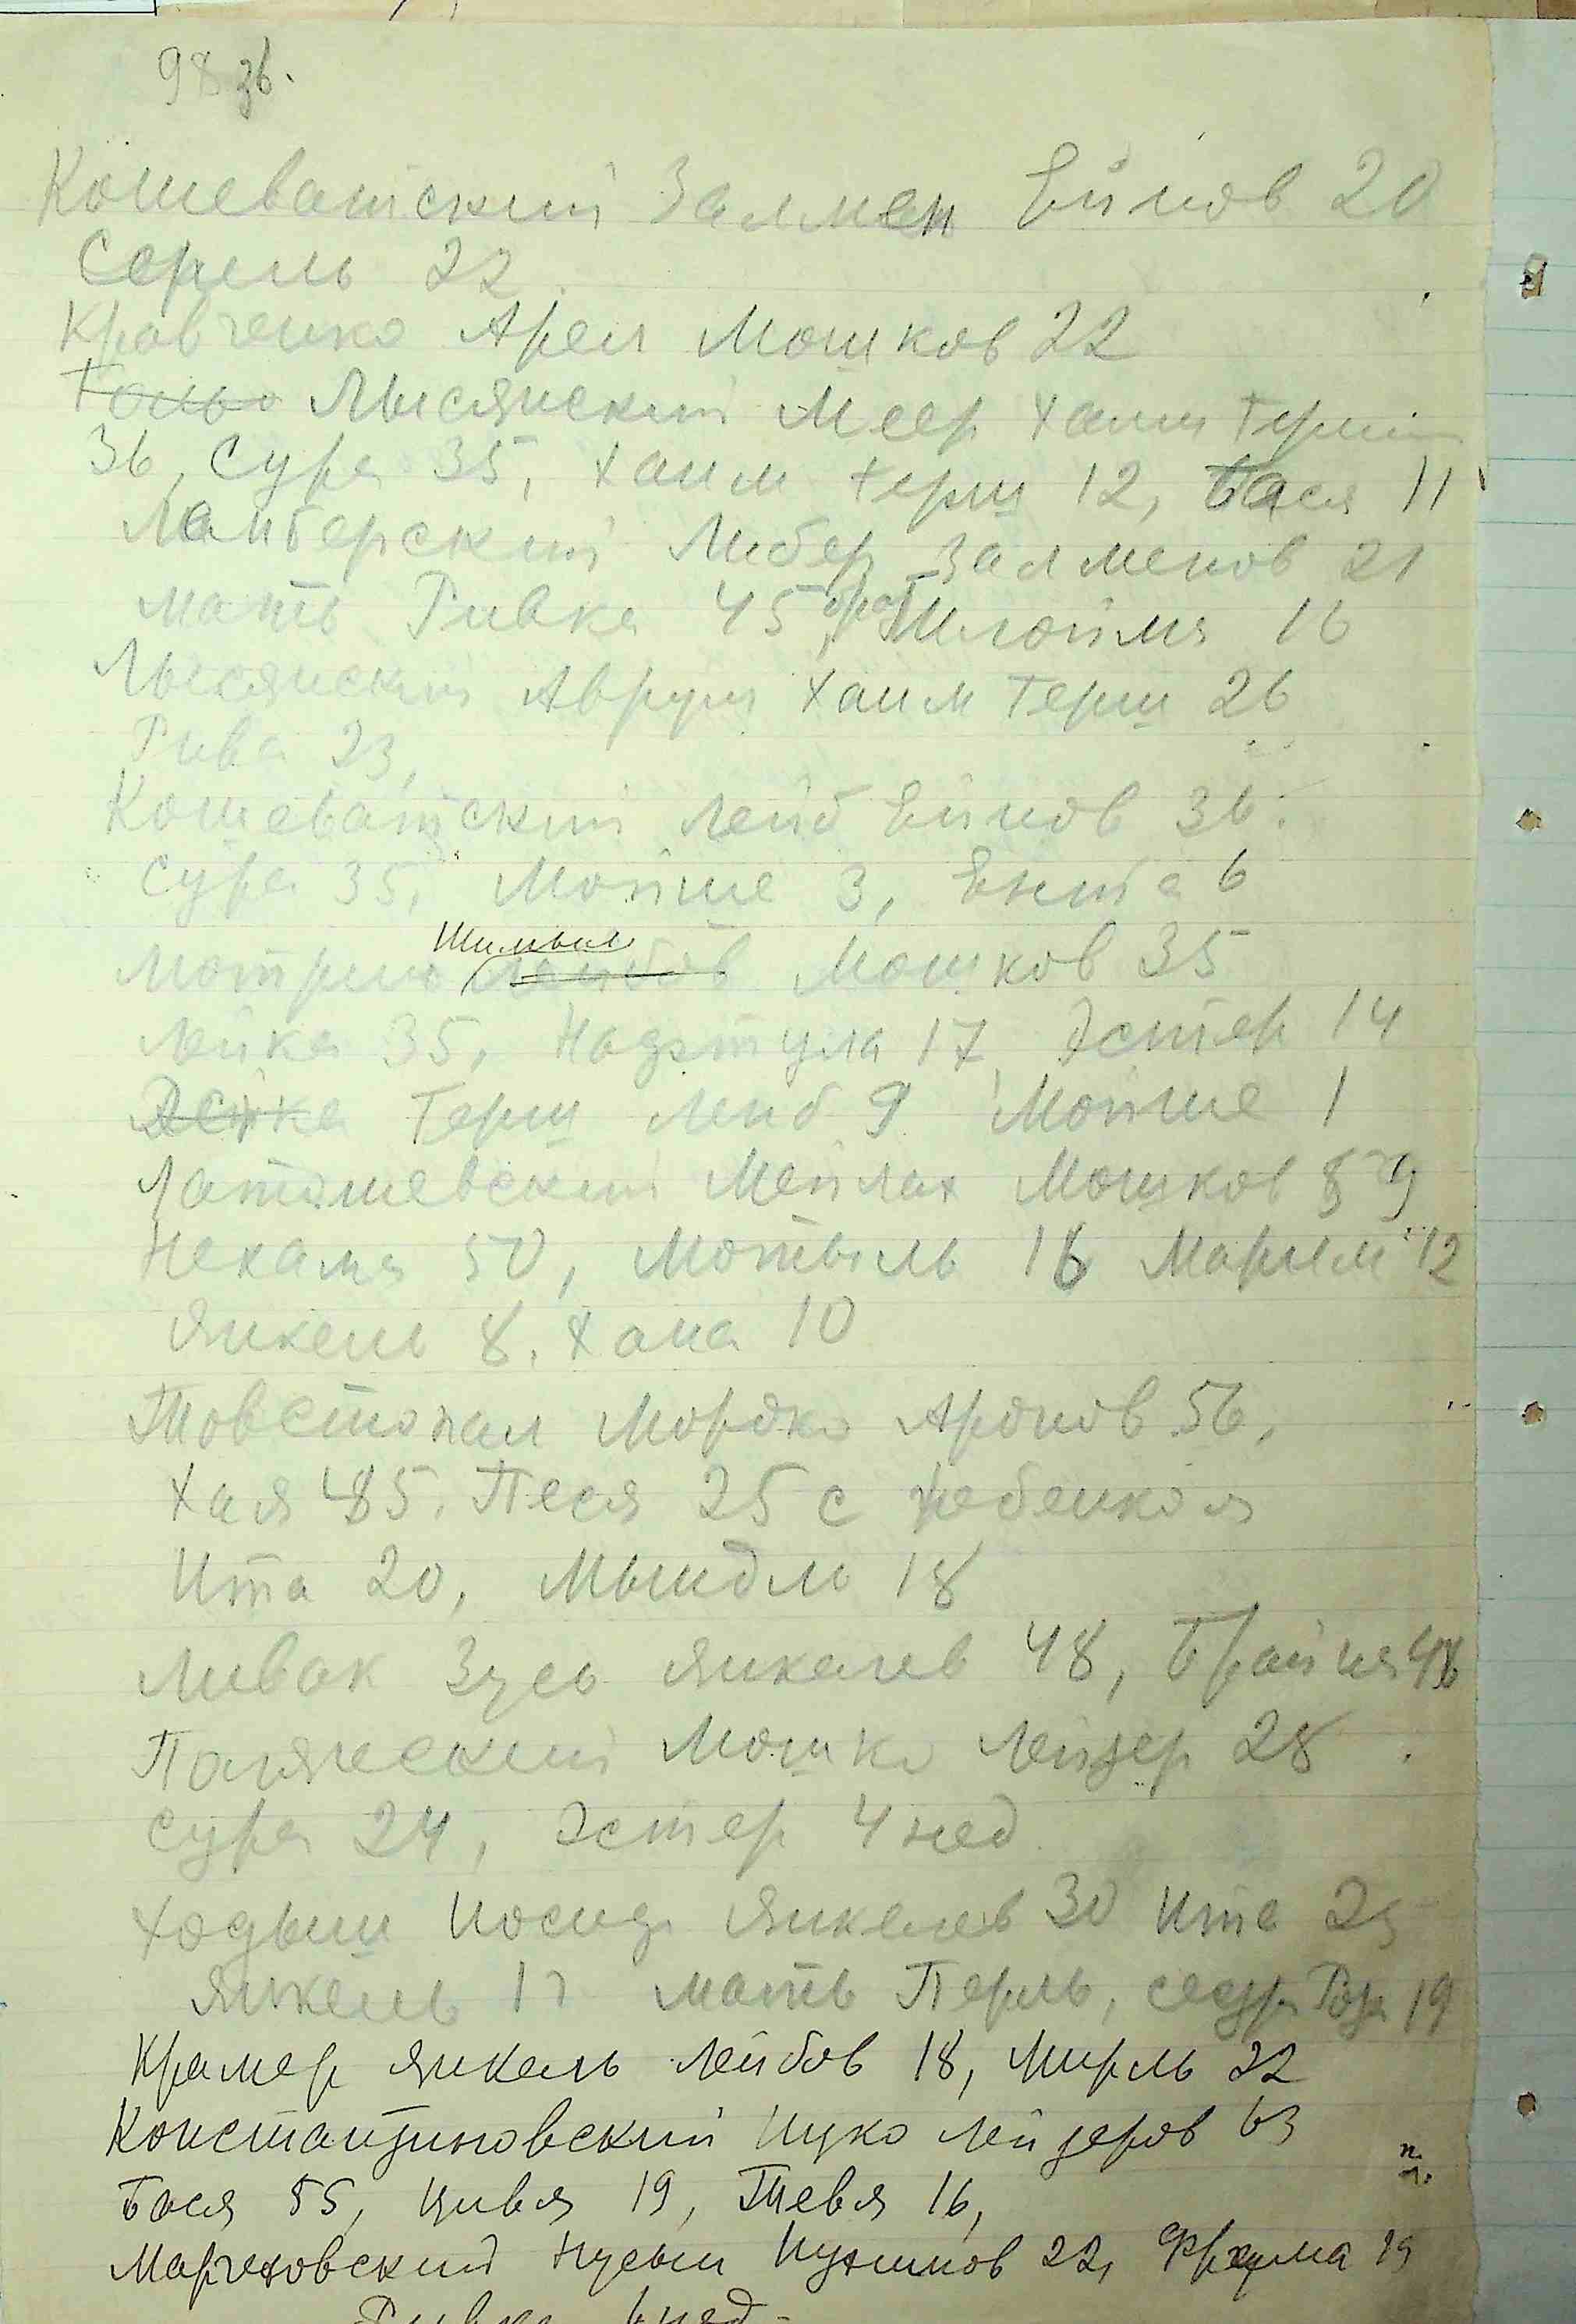 98 зв.
Кошеватский Залмен Ейнов 20
Серель 22
Кравченко Арон Мошков 22
Лысянский Меер Хаим Герш
36, Сура 35, Хаим Герш 12, Бася 11
Ламберский Либер Залменов 21
мать Ривка 45, брат Шлойма 16
Лысянский Аврум Хаим Герш 26
Рива 23,
Кошеватский Лейб Ейнов 36
Сура 35, Мойше 3, Ента 6
Шмылев
Мотрию Лейбов Мошков 35
Лейка 35, 17 Эстер 14
Герш Лейб 9 Мойше 1
Латошевский Мейлах Мошков
Нехама 50, Мотыль 16 Марьям 12
Янкель 8, Хана 10
Товстопал Мордко Аронов 56,
Хая 45, Песя 25 с ребенком
Ита 20, Мындль 18
Ливак Зусь Янкелев 48, Брайна 48
Мошко Лейзер 28
Сура 24, Эстер 4 нед
Ходыш Иосид Янкелев 30 Ита 25
Янкель мать Перль, сестра Роза 19
Крамер Янкель Лейбов 18, Мирль 22
Константиновский Ицко Лейзеров 63
Бася 55, Цивья 19, Тевя 16,
Мариховский Нусын Нухимов 22, Фрума 19
Ривка нед.